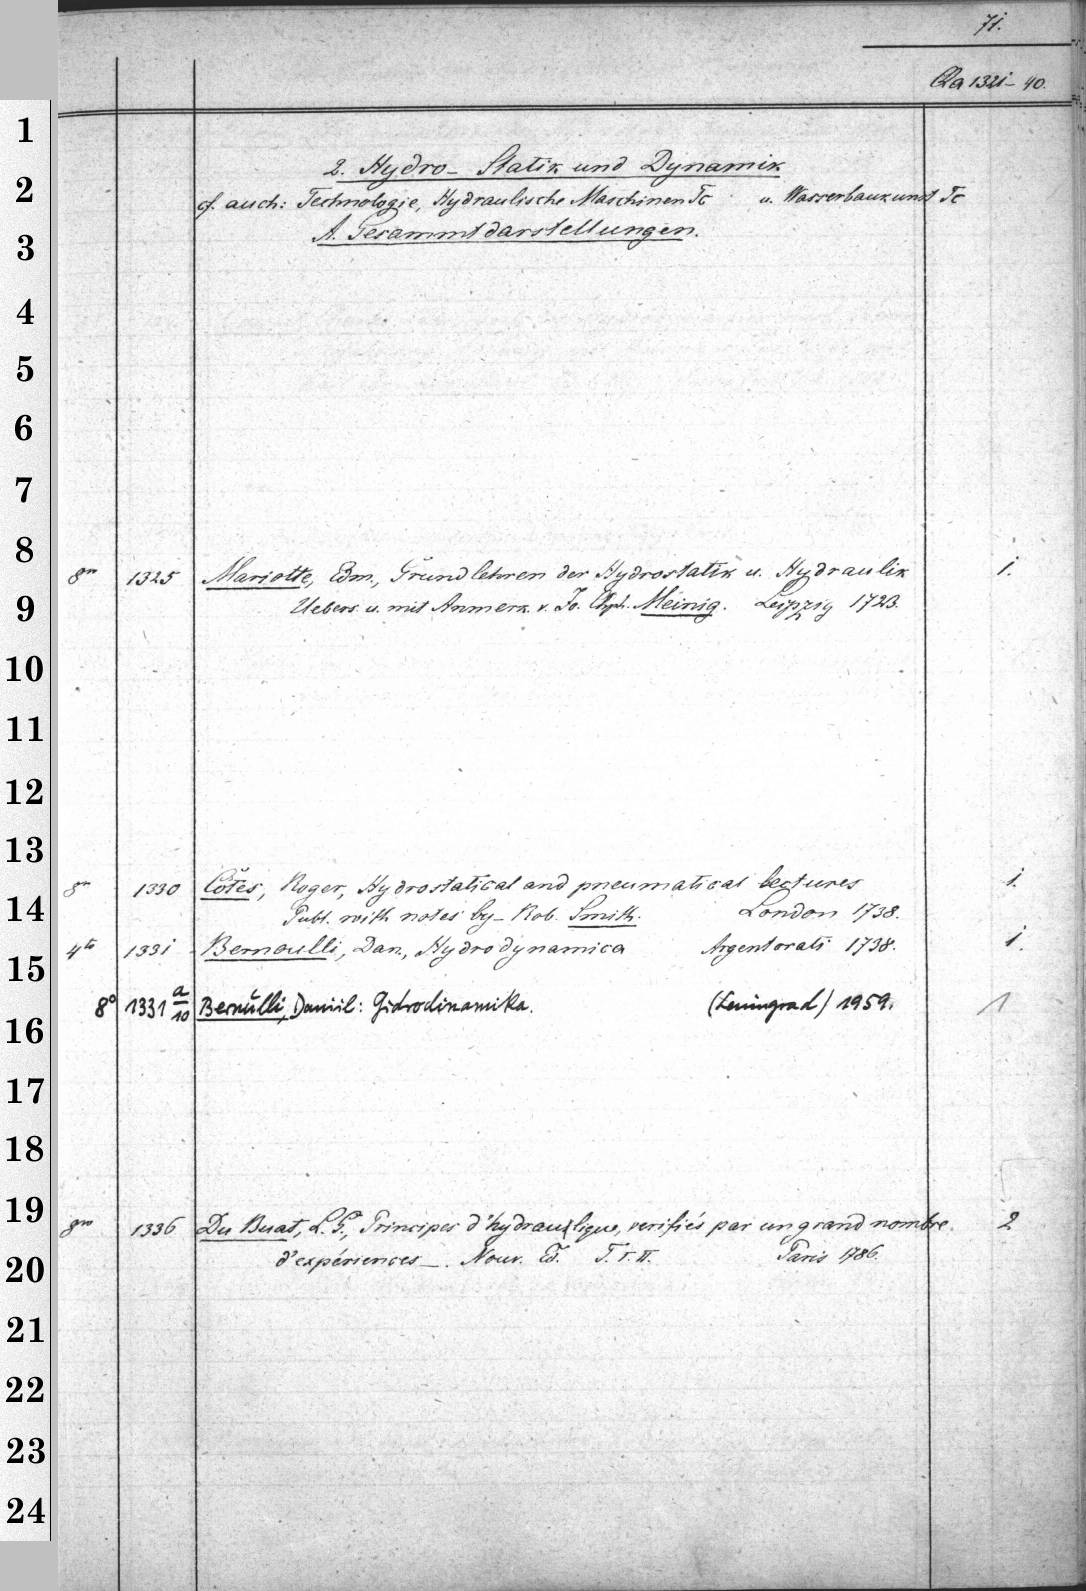 71.
Qa 1321-40.
2. Hydro- Statik und Dynamik
cf. auch: Technologie, Hydraulische Maschinen Tc u. Wasserbaukunst Tc
A. Gesammtdarstellungen.
8vo 1325 Mariotte, Edm., Grundlehren der Hydrostatik u. Hydraulik 1.
Uebers. u. mit Anmerk. v. Jo. Chph. Meinig. Leipzig 1723.
8vo 1330 Côtes, Roger, Hydrostatical and pneumatical lectures 1.
Publ. with notes by Rob. Smith. London 1738.
4to 1331 Bernoulli, Dan., Hydrodynamica Argentorati 1738. 1.
8° 1331 a/10 Bernulli, Daniil: Gidrodinamika. (Leningrad) 1959. 1
8vo 1336 Du Buat, L. G., Principes d'hydraulique, verifiés par un grand nombre 2
d'expériences—. Nouv. Ed. T. I. II. Paris 1786.
1
2
3
4
5
6
7
8
9
10
11
12
13
14
15
16
17
18
19
20
21
22
23
24